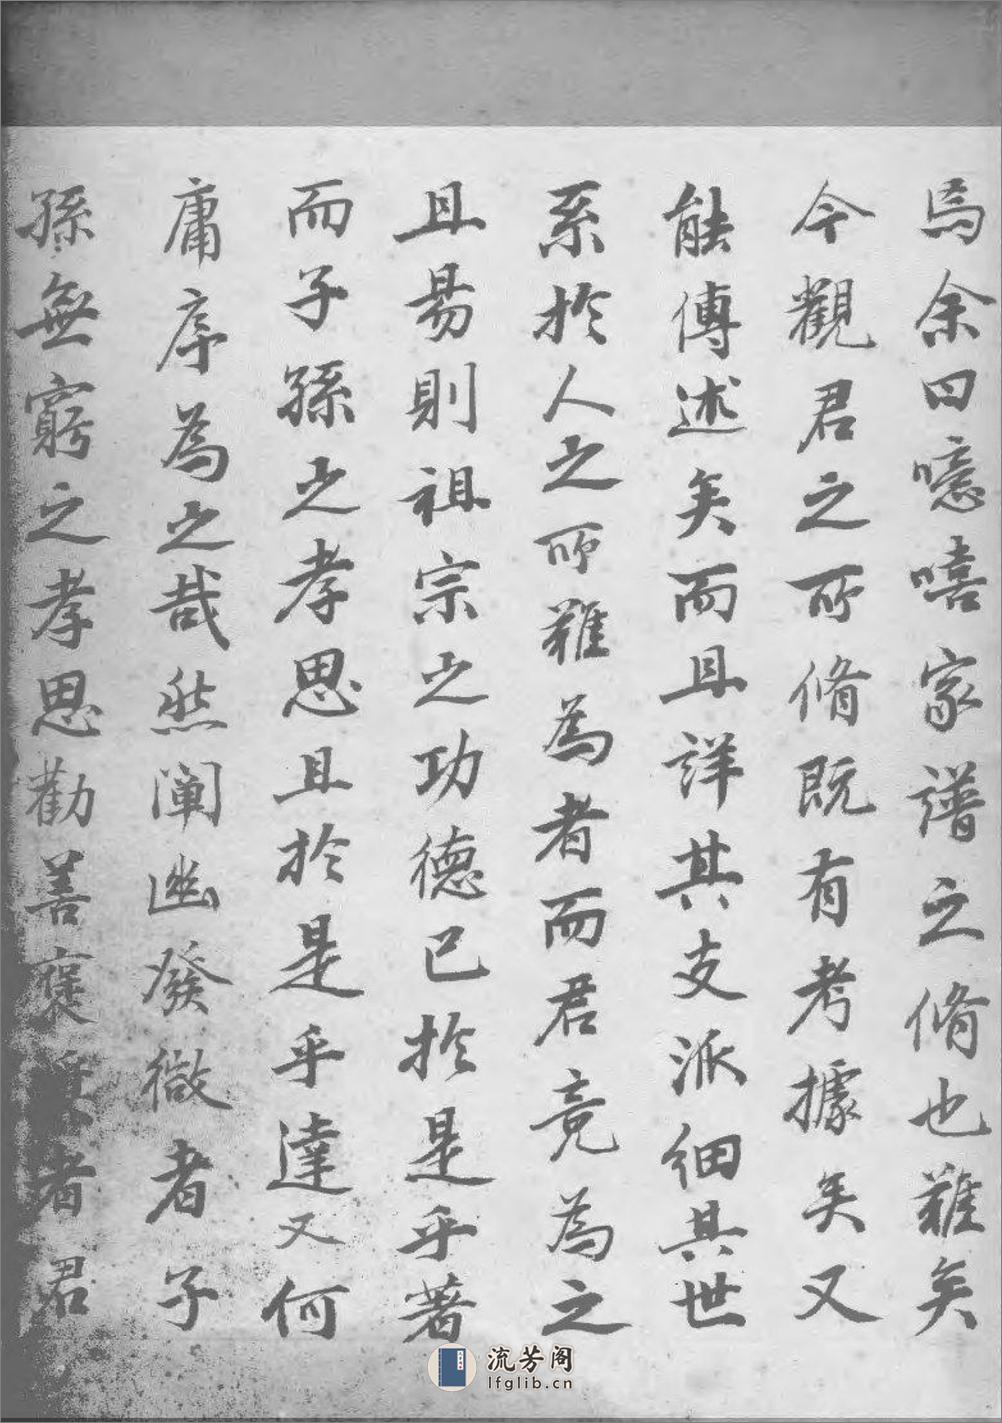 焉余曰噫嘻家譜之脩也難矣
今觀君之所脩既有考據矣又
能傳述矣而且詳其支派細其世
系於人之所難為者而君竟為之
且易則祖宗之功德已於是乎著
而子孫之孝思且於是乎達又何
庸序為之哉然闡幽發微者子
孫無窮之孝思勸善褒 者君
流芳阁
lfglib.cn